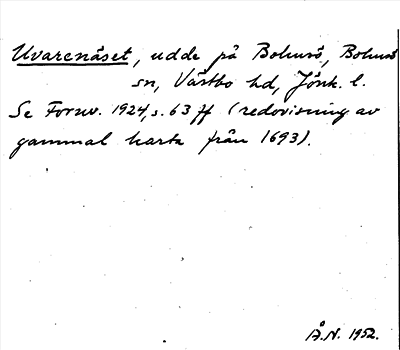 Uvarenäset, udde på Bolmsö, Bolmsö
sn, Västbo hd, Jönk. l.
Se Fornv. 1924, s. 63 ff (redovisning av
gammal karta från 1693).
Å.N. 1952.